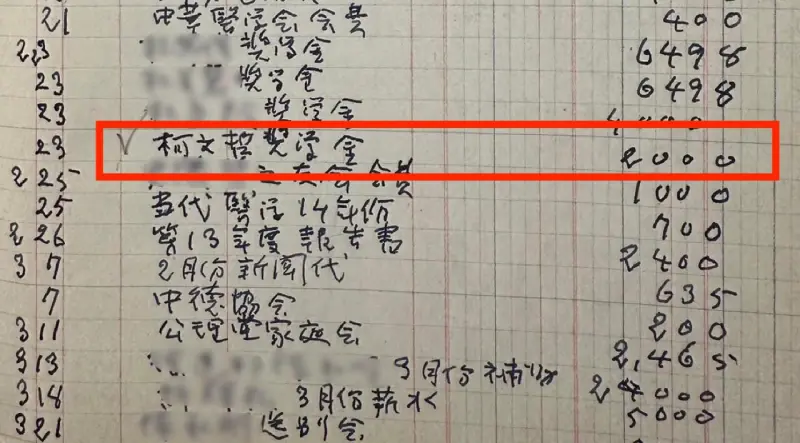 21 中華醫學会会費 400
2 23 獎学金 6498
23 獎学金 6498
23 獎学金
23 ✓ 柯文哲獎學金 2000
2 25 之友会会費 1000
25 当代醫学14年份 700
2 26 第13年度報告書 2400
3 7 2月份新聞代 635
7 中德協会 200
3 11 公理堂家庭会 2,465
3 13 3月份補 2
3 18 3月份薪水 4000
3 21 送別会 5000